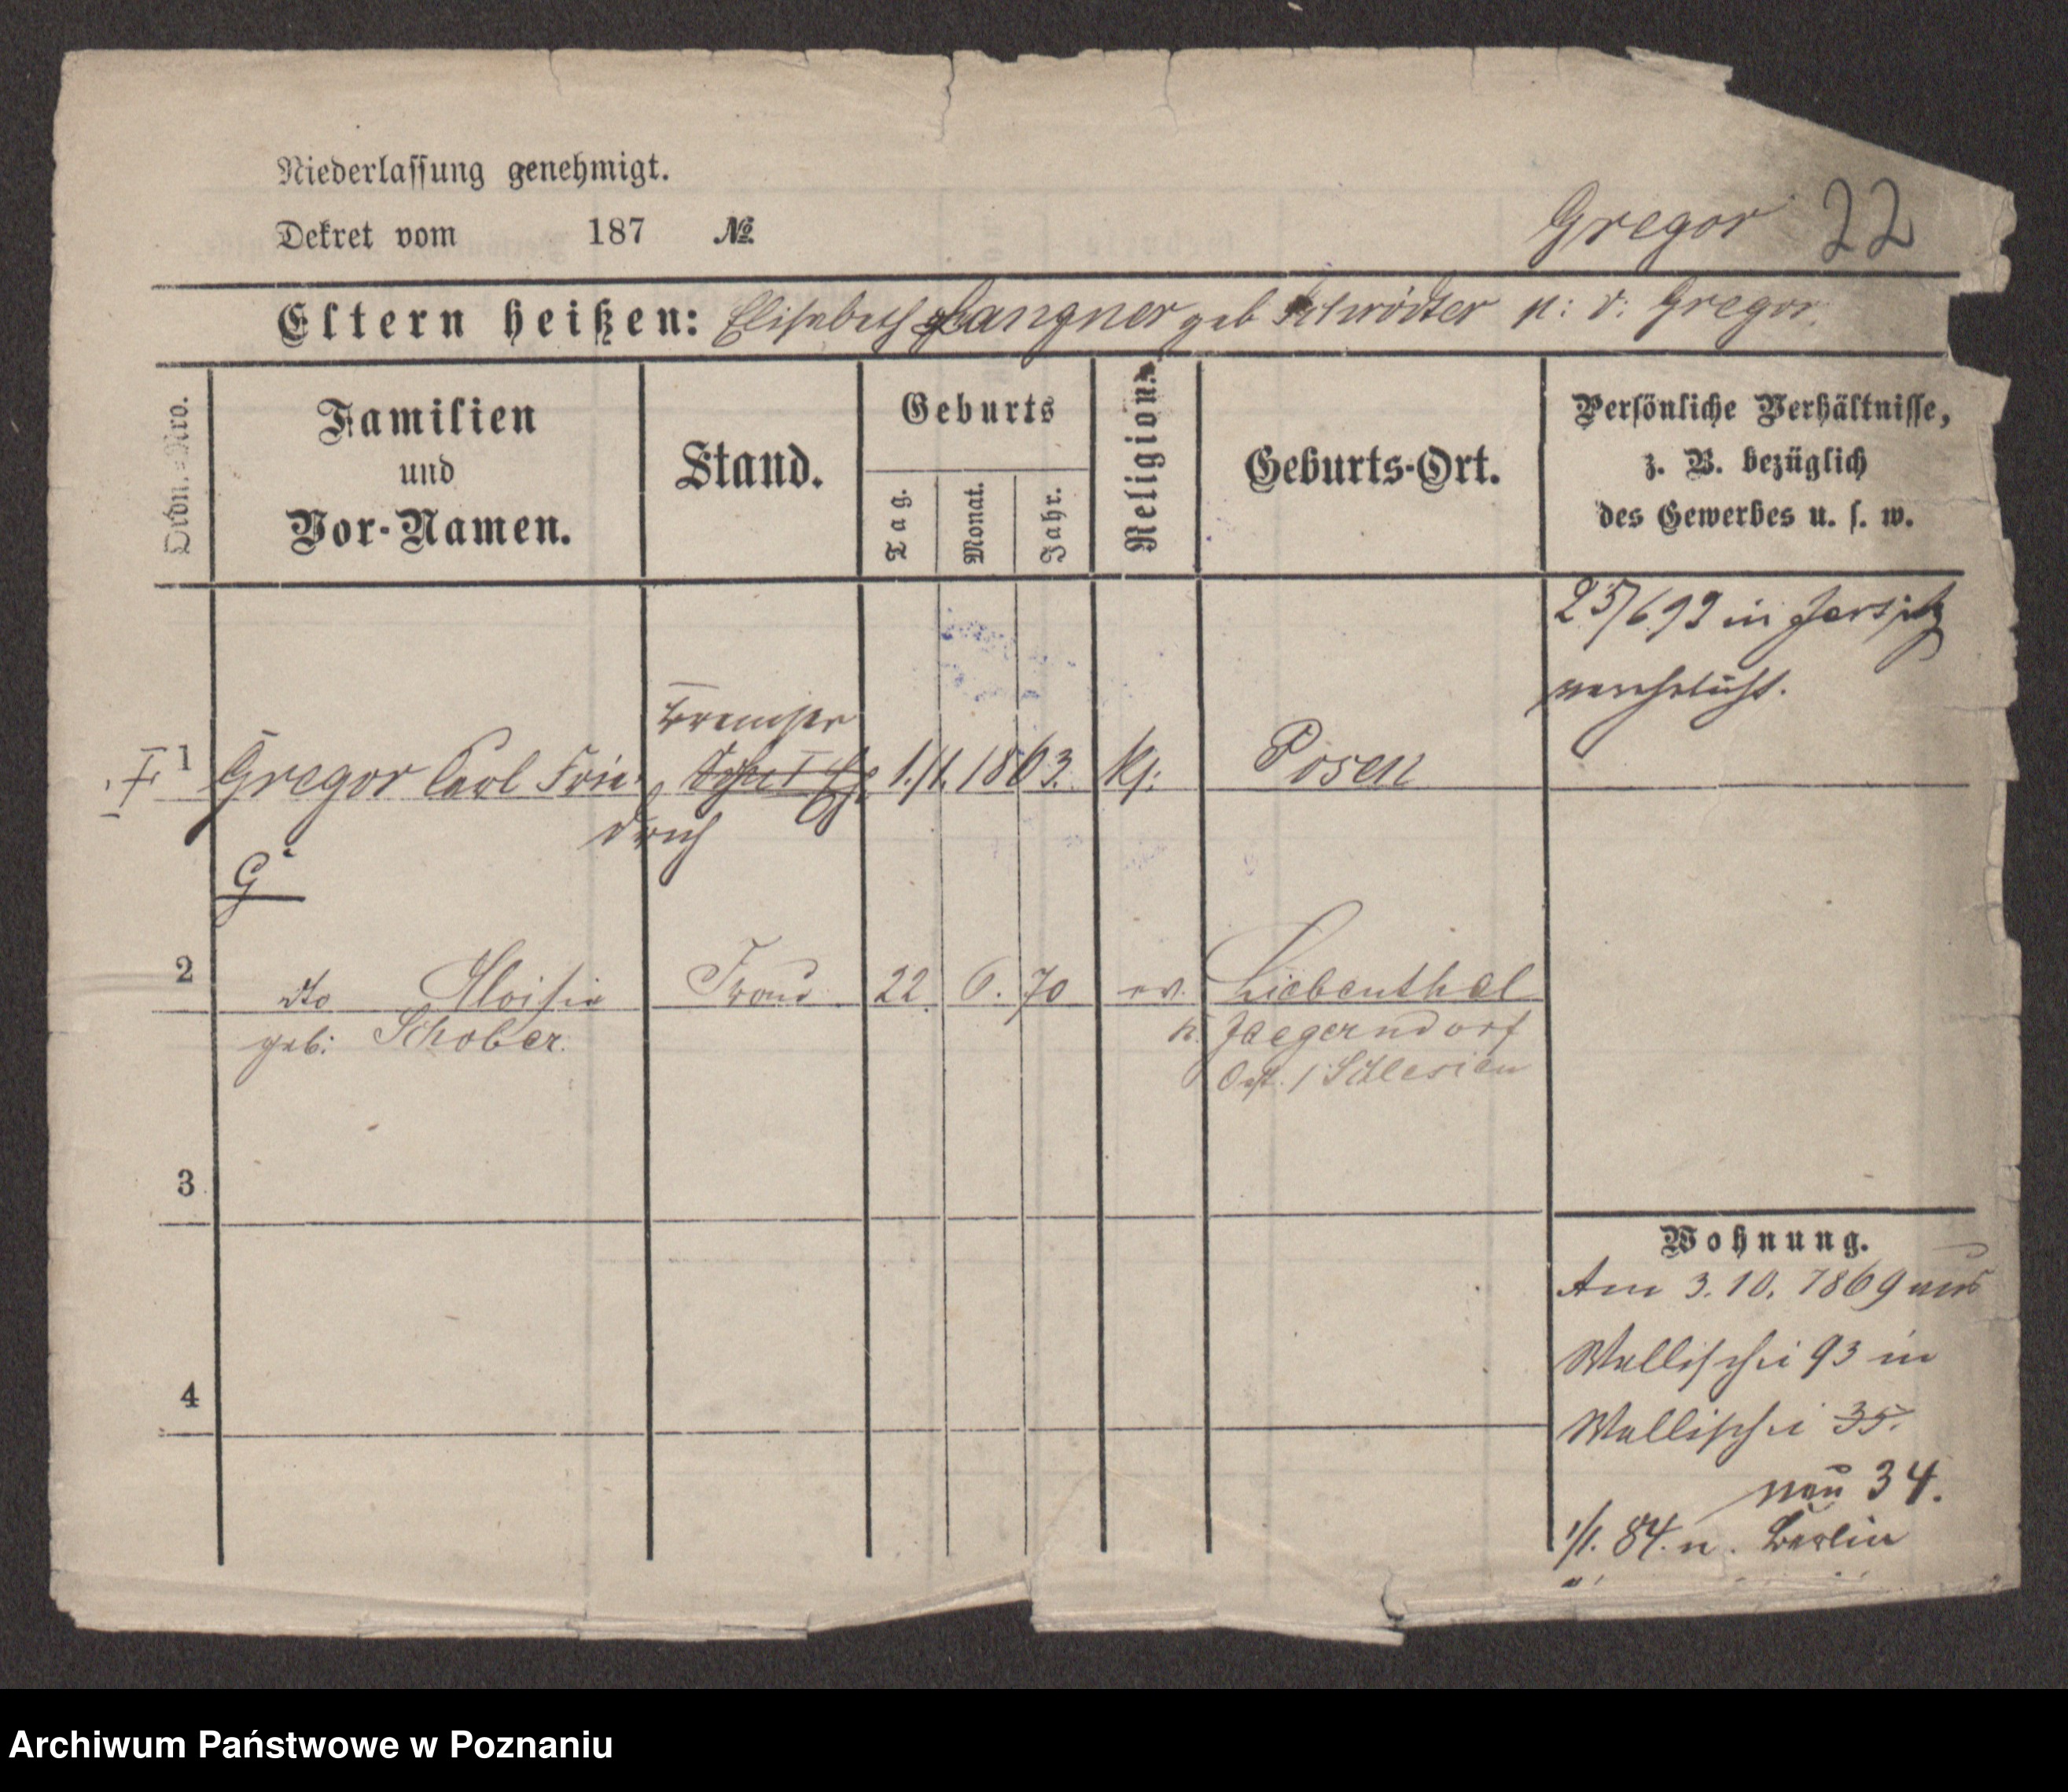 Niederlassung genehmigt.
Dekret vom 187 №
Gregor 22
Eltern heißen: Elisabeth Langner geb Schrödter n: v: Gregor.
Ordn.-Nro.
Familien
und
Vor-Namen.
Stand.
Geburts
Tag.
Monat.
Jahr.
Religion.
Geburts-Ort.
Persönliche Verhältnisse,
z. B. bezüglich
des Gewerbes u. s. w.
25/6 92 in Jersitz
verehelicht.
Bremser
1 Gregor Carl Frie- 1./1. 1863. kf: Posen
drich
G
2 dto Aloisia Frau 22 6. 70 ev. Liebenthal
geb: Schober. Kr. Jaegerndorf
Oest. / Schlesien
3
Wohnung.
Am 3. 10. 1869 aus
Wallischei 93 in
4
Wallischei 35.
neu 34.
1/1. 84. n. Berlin
Archiwum Państwowe w Poznaniu